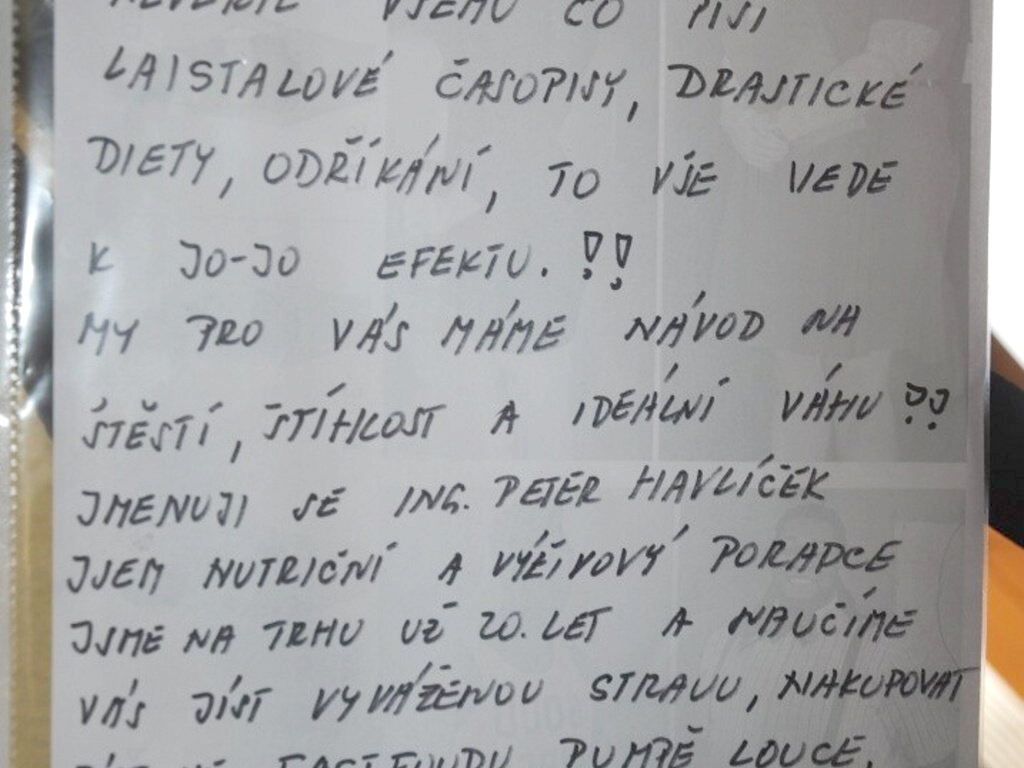 VŠEMU CO PÍŠÍ
LAISTALOVÉ ČASOPISY, DRASTICKÉ
DIETY, ODŘÍKÁNÍ, TO VŠE VEDE
K JO-JO EFEKTU. !!
MY PRO VÁS MÁME NÁVOD NA
ŠTĚSTÍ, ŠTÍHLOST A IDEÁLNÍ VÁHU ??
JMENUJI SE ING. PETER HAVLÍČEK
JSEM NUTRIČNÍ A VÝŽIVOVÝ PORADCE
JSME NA TRHU UŽ 20. LET A NAUČÍME
VÁS JÍST VYVÁŽENOU STRAVU, NAKUPOVAT
FASTFOODU PUMPĚ LOUCE,